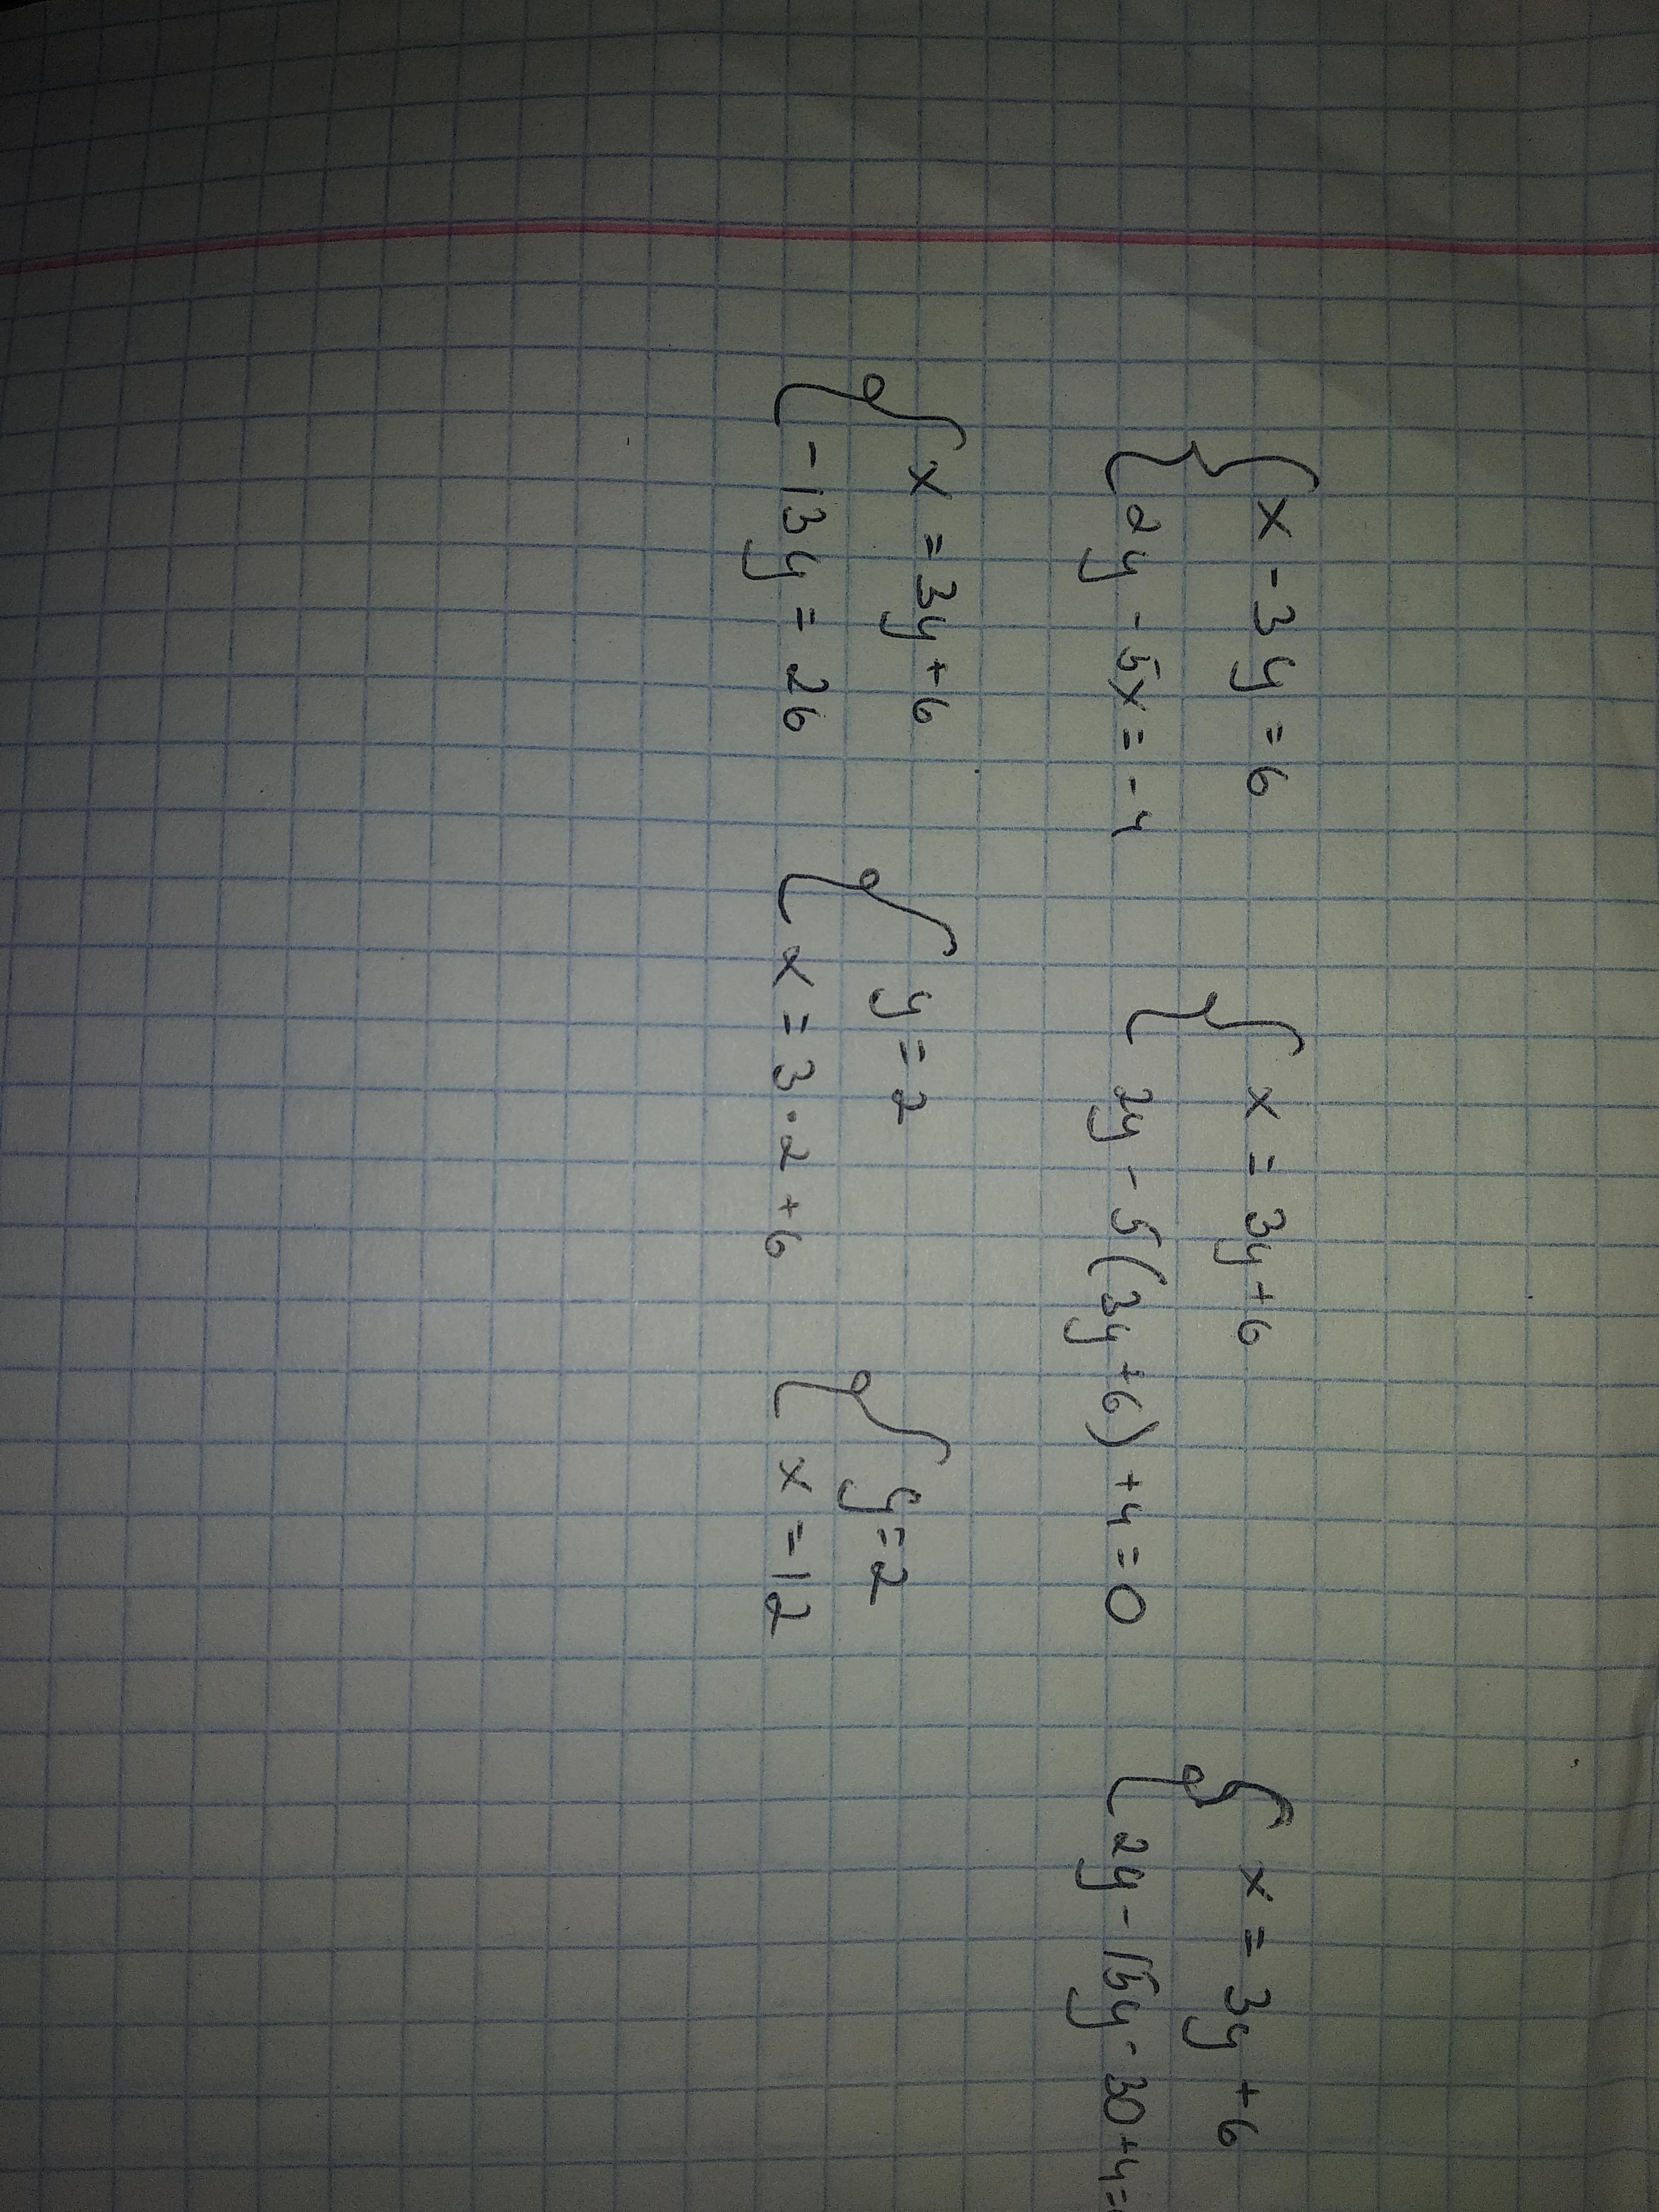 x - 3y = 6
2y - 5x = -4
x = 3y + 6
2y - 5(3y + 6) + 4 = 0
x = 3y + 6
2y - 15y - 30 + 4 =
x = 3y + 6
- 13y = 26
y = 2
x = 3 · 2 + 6
y = 2
x = 12